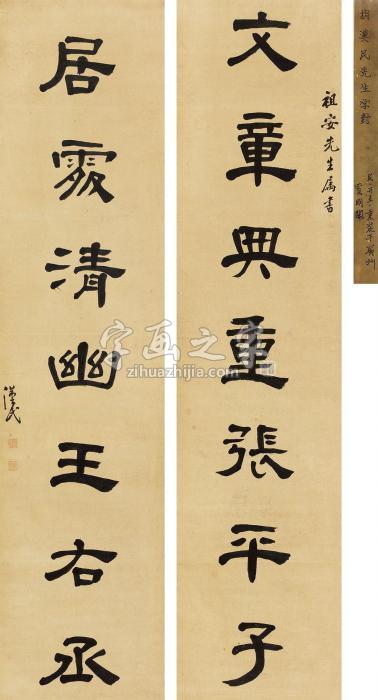 胡漢民先生字對
祖安先生属書
文章典重張平子
居處清幽王右丞
漢民
字画之家
zihuazhijia.com